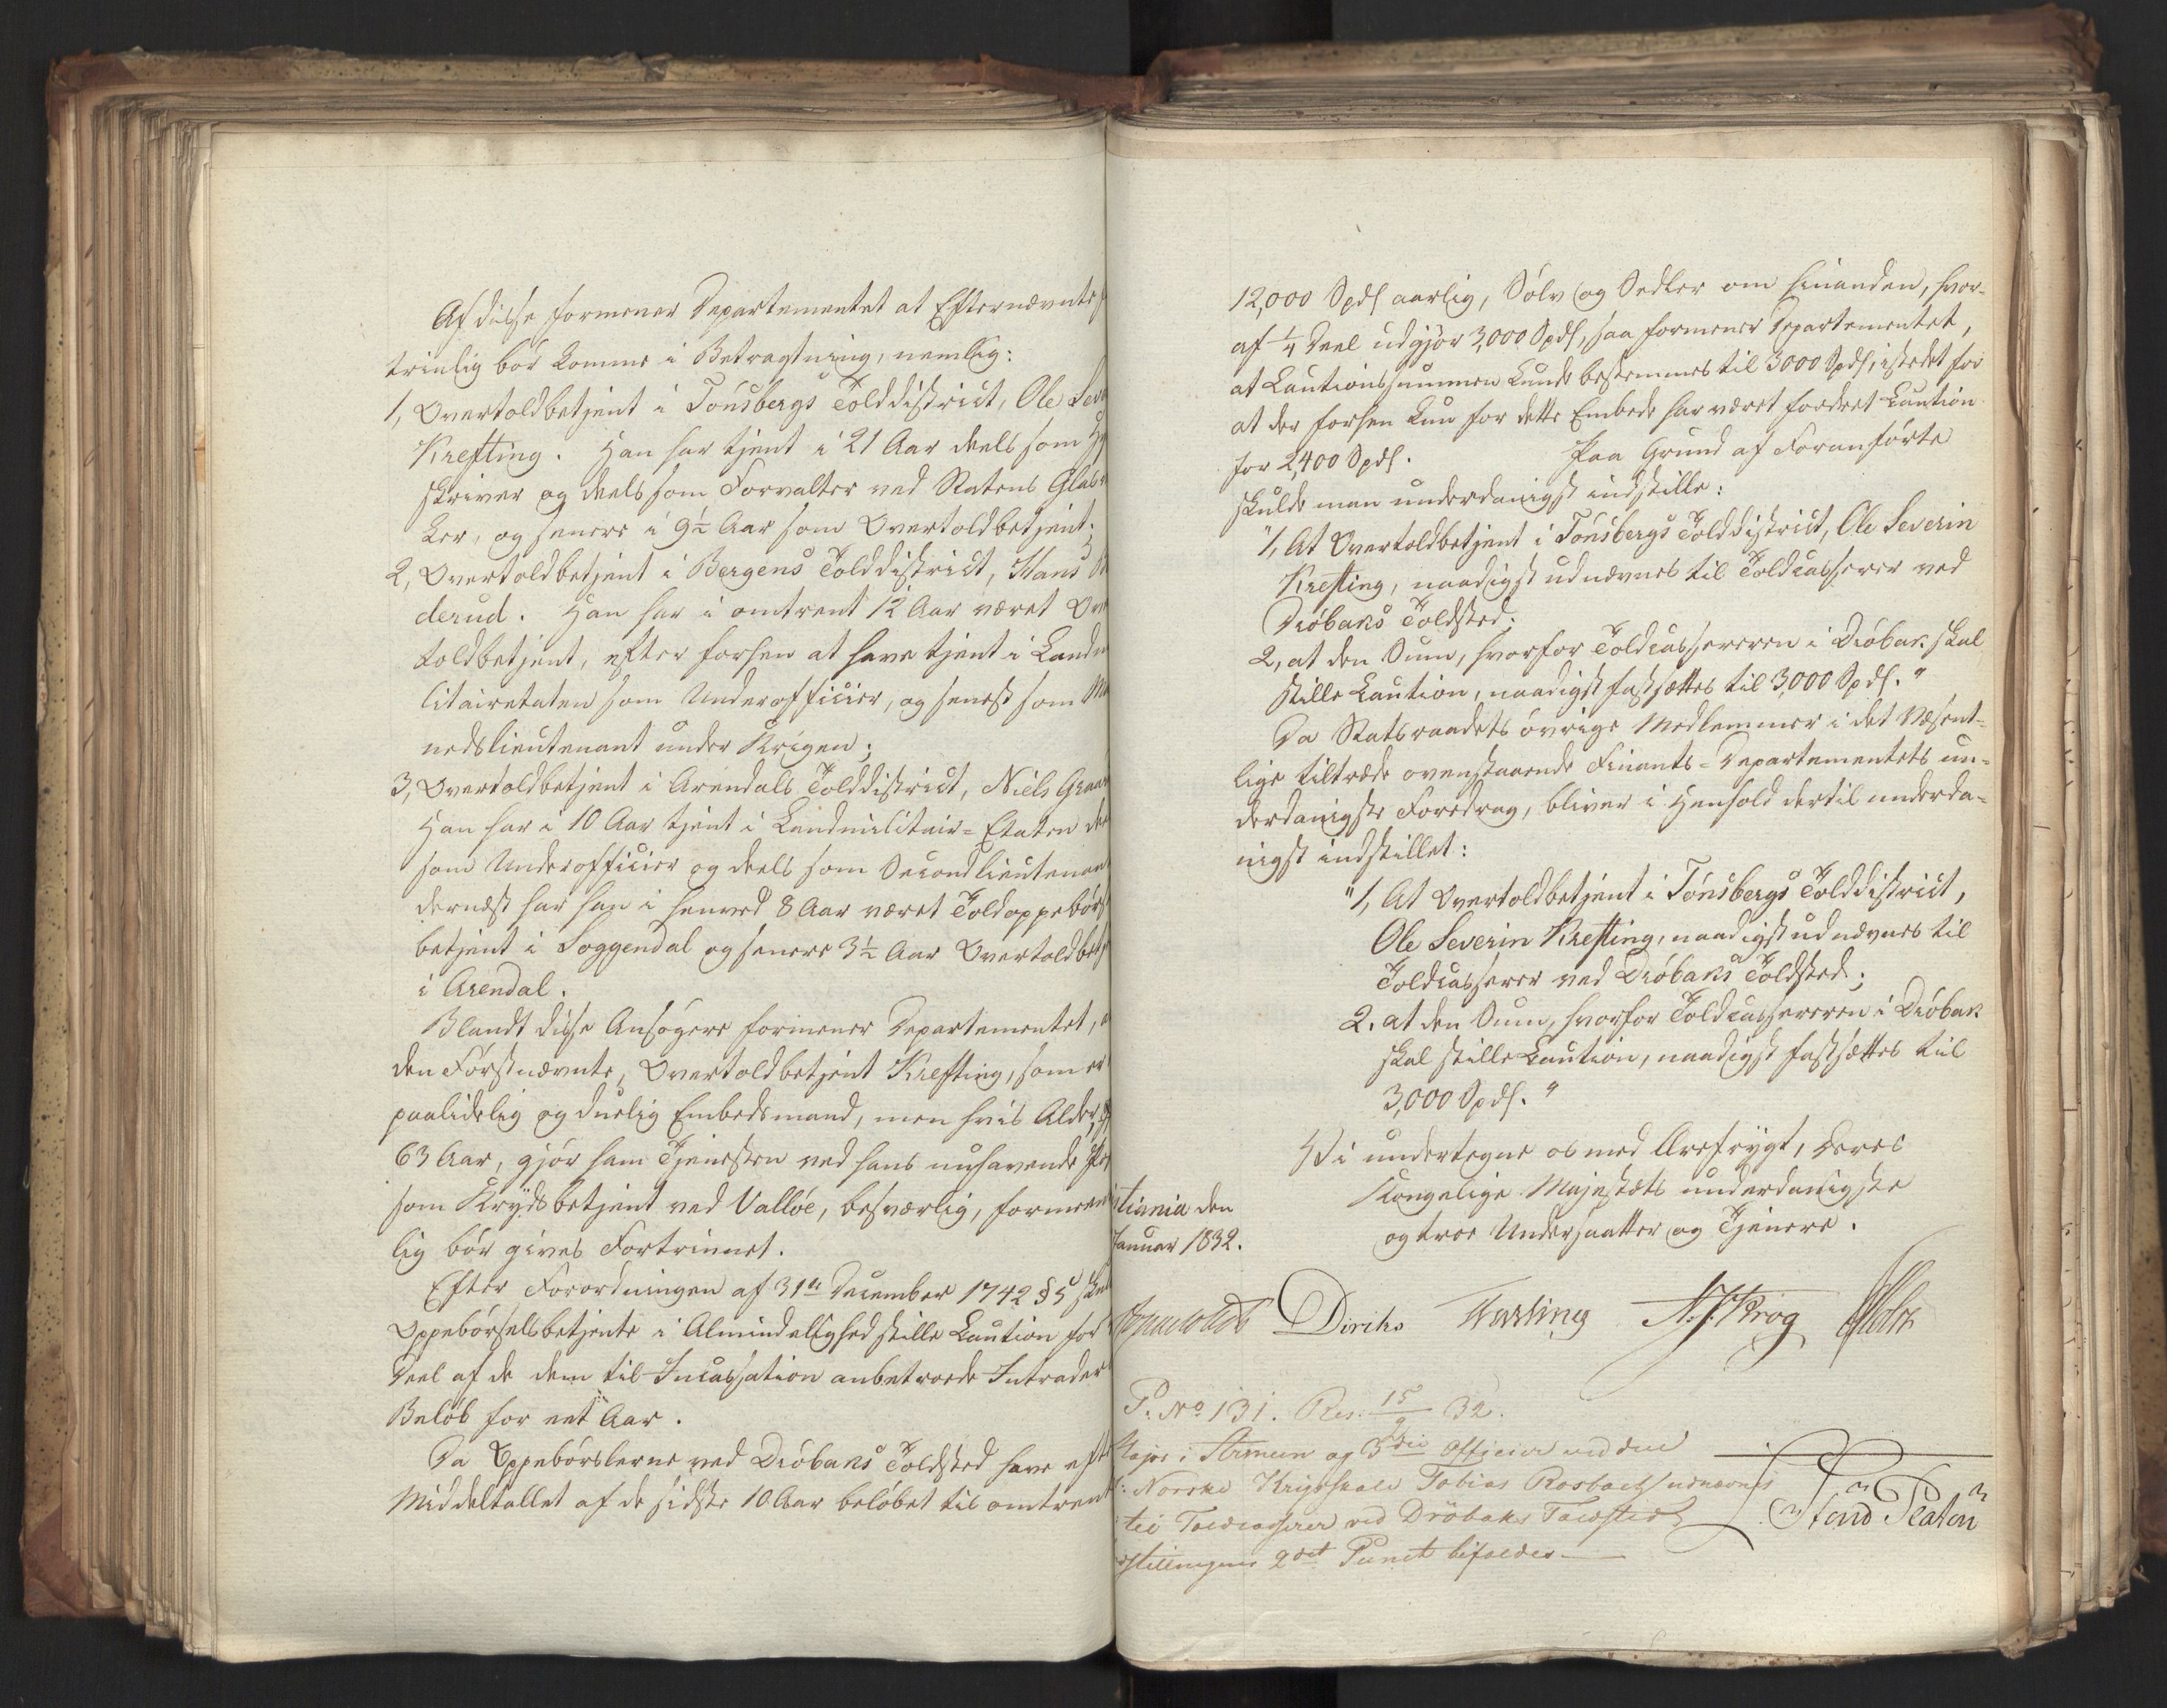 Af disse formener Departementet at Efternævnte
trinlig bør komme i Betragtning, nemlig:
1, Overtoldbetjent i Tønsbergs Tolddistrict, Ole Seve
Krefting. Han har tjent i 21 Aar deels som
skriver og deels som Forvalter ved Statens Glas
ker, og senere i 9½ Aar som Overtoldbetjent;
2, Overtoldbetjent i Bergens Tolddistrict, Hans
derud. Han har i omtrent 12 Aar været Ove
toldbetjent, efter forhen at have tjent i Landm
litairetaten som Underofficier, og senest som
nedslieutenant under Krigen;
3, Overtoldbetjent i Arendals Tolddistrict, Niels
Han har i 10 Aar tjent i Landmilitair-Etaten dee
som Underofficier og deels som Secondlieutenant
dernæst har han i henved 8 Aar været Toldoppebørs
betjent i Soggendal og senere 3½ Aar Overtoldbetj
i Arendal.
Blandt disse Ansøgere formener Departementet, a
den Førstnævnte, Overtoldbetjent Krefting, som er
paalidelig og duelig Embedsmand, men hvis Alder,
63 Aar, gjør ham Tjenesten ved hans nuhavende
som Krydsbetjent ved Valløe, besværlig, formeen
lig bør gives Fortrinnet.
Efter Forordningen af 31te December 1742 § 5 skal
Oppebørselsbetjente i Almindelighed stille Caution for
Deel af de dem til Incassation anbetroede Intraders
Beløb for eet Aar.
Da Oppebørslerne ved Drøbaks Toldsted have efte
Middeltallet af de sidste 10 Aar beløbet til omtrent
12,000 Spdl aarlig, Sølv og Sedler om hinanden, hvor-
af ¼ Deel udgjør 3,000 Spdl, saa formener Departementet,
at Cautionssummen kunde bestemmes til 3000 Spdl, istedet for
at der forhen kun for dette Embede har været fordret Caution
for 2,400 Spdl. Paa Grund af Foranførte
skulde man underdanigst indstille:
"1, At Overtoldbetjent i Tønsbergs Tolddistrict, Ole Severin
Krefting, naadigst udnævnes til Toldcasserer ved
Drøbaks Toldsted;
2, at den Sum, hvorfor Toldcassereren i Drøbak skal
stille Caution, naadigst fastsættes til 3,000 Spdl."
Da Statsraadets øvrige Medlemmer i det Væsent-
lige tiltræde ovenstaaende Finants-Departementets un-
derdanigste Foredrag, bliver i Henhold dertil underda-
nigst indstillet:
"1, At Overtoldbetjent i Tønsbergs Tolddistrict,
Ole Severin Krefting, naadigst udnævnes til
Toldcasserer ved Drøbaks Toldsted;
2. at den Sum, hvorfor Toldcassereren i Drøbak
skal stille Caution, naadigst fastsættes til
3,000 Spdl."
Vi undertegne os med Ærefrygt, Deres
Kongelige Majestæts underdanigste
og troe Undersaatter og Tjenere.
tiania den
Januar 1832.
Diriks Fasting N. J. Krog Holst
P. No 131. Res. 15/9 32.
Major i Armeen og 3die Officier ved den
Norske Krigsskole Tobias Rosbach udnævnes
til Toldcasserer ved Drøbaks Toldsted
stillingens 2det Punct bifaldes.